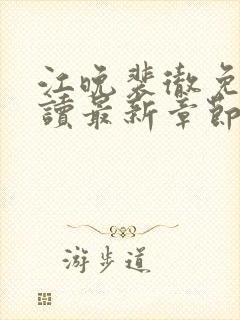 江晚裴徹免
讀最新章節
游步道